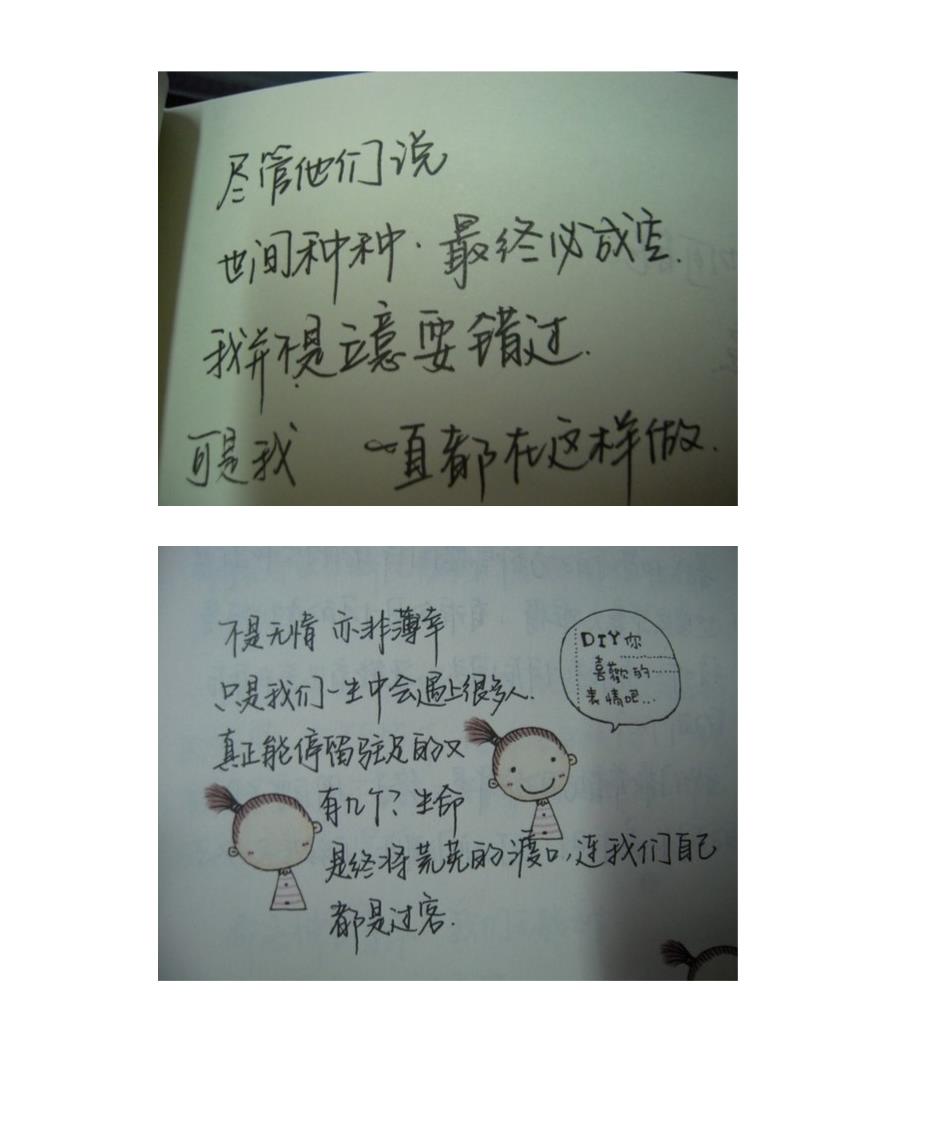 尽管他们说
世间种种.最终必成空.
我并不是立意要错过.
可是我 一直都在这样做.
不是无情 亦非薄幸
只是我们一生中会遇上很多人.
真正能停留驻足的又
有几个?生命
是终将荒芜的渡口,连我们自己
都是过客.
DIY你
喜歡的
表情吧...